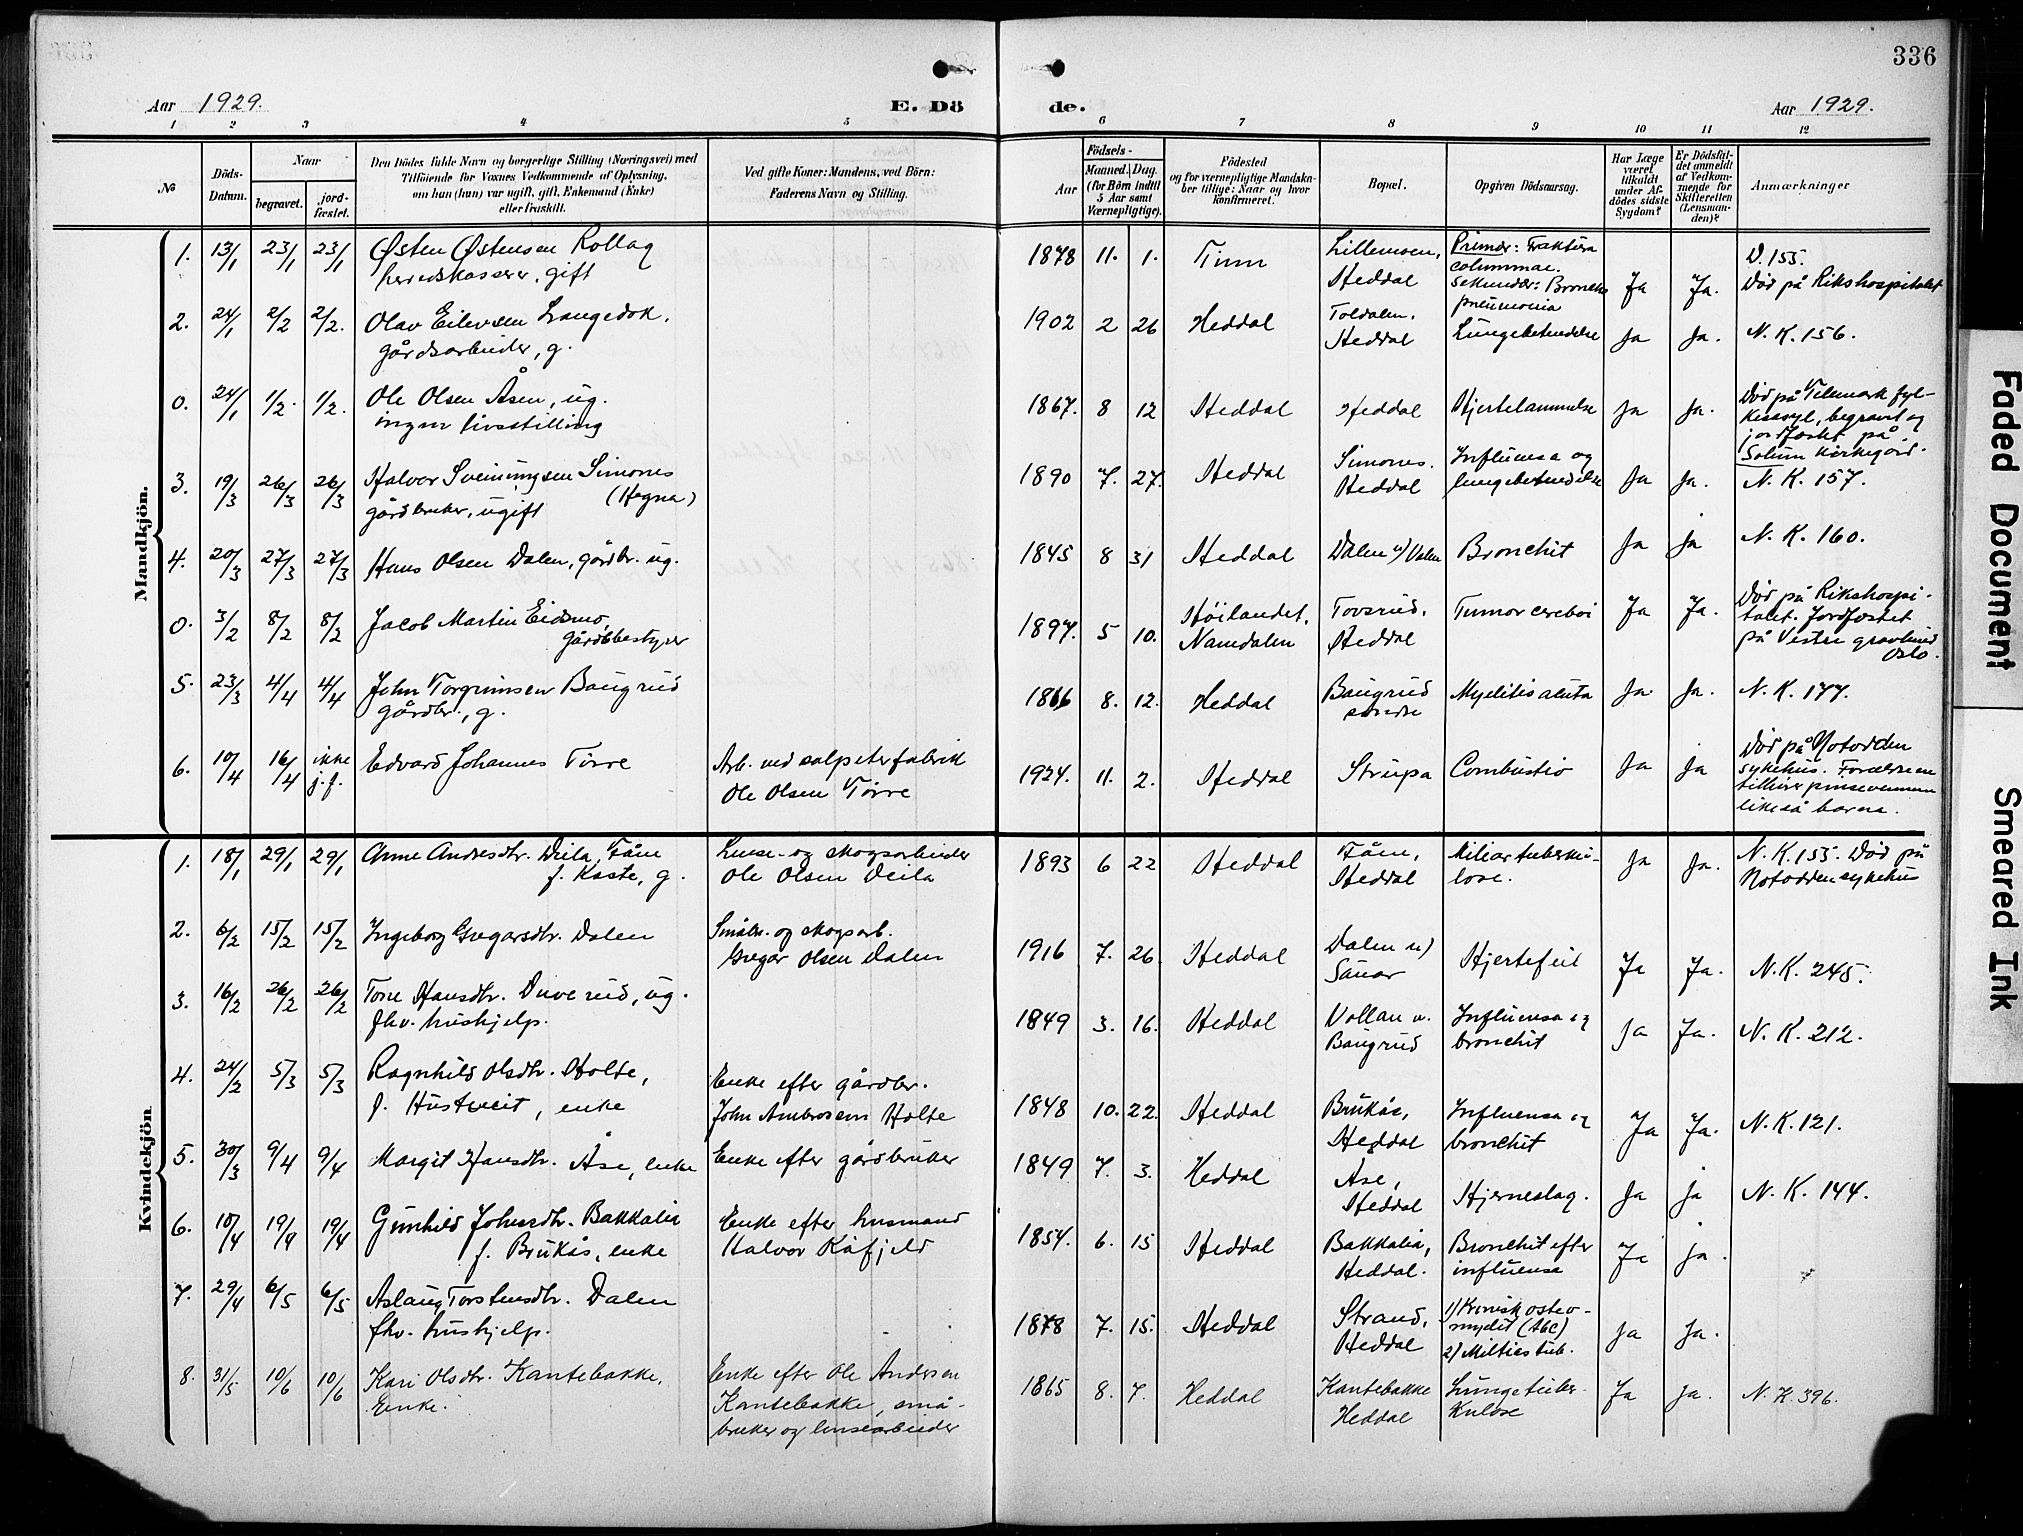 336
Aar 1929.
E. Dö de.
Aar 1929.
1 2 3 4 5 6 7 8 9 10 11 12
№
Döds-Datum.
Naar
begravet.
jord-fæstet.
Den Dödes fulde Navn og borgerlige Stilling (Næringsvei) med
Tilföiende for Voxnes Vedkommende af Oplysning,
om han (hun) var ugift, gift, Enkemand (Enke)
eller fraskilt.
Ved gifte Koner: Mandens, ved Börn:
Faderens Navn og Stilling.
Aar
Födsels-
Maaned. Dag.
(for Börn indtil
5 Aar samt
Værnepligtige).
Födested
og for værnepligtige Mandska-
ber tillige: Naar og hvor
konfirmeret.
Bopæl.
Opgiven Dödsaarsag.
Har Læge
været
tilkaldt
under Af-
dödes sidste
Sygdom?
Er Dödsfal-
det anmeldt
af Vedkom-
mende for
Skifteretten
(Lensman-
den)?
Anmærkninger
Mandkjön.
1. 13/1 23/1 23/1 Østen Østensen Rollag
herredskasserer, gift
1878 11. 1. Tinn Lillemoen,
Heddal
Primær: Fraktura
columnae.
sekundær: Broncho
pneumonia
Ja Ja. D. 155.
Død på Rikshospitalet
2. 24/1 2/2 2/2. Olav Eilevsen Langedok,
gårdsarbeider, g.
1902 2 26 Heddal Toldalen,
Heddal Lungebetendelse Ja Ja. N. K. 156.
0. 24/1 1/2. 1/2. Ole Olsen Åsen, ug.
ingen livsstilling
1867. 8 12 Heddal Heddal Hjertelammelse Ja Ja. Død på Telemark fyl-
kessyk., begravet og
jordfæstet på
Solum kirkegård.
3. 19/3 26/3 26/3 Halvor Sveinungsen Simones
(Hegna)
gårdbruker, ugift
1890 7. 27. Heddal Simones.
Heddal Influensa og
lungebetendelse Ja Ja. N. K. 157.
4. 20/3 27/3 27/3 Hans Olsen Dalen, gårdbr. ug.
1845 8 31 Heddal Dalen u/ Valen Bronchit Ja ja N. K. 160.
0. 3/2 8/2 8/2 Jacob Martin Eidsmo,
gårdsbestyrer
1897. 5 10. Høilandet,
Namdalen Tovsrud,
Heddal Tumor cerebri Ja Ja. Død på Rikshospi-
talet. Jordfæstet
på Vestre gravlund
Oslo.
5. 23/3 4/4 4/4 John Torgrimsen Baugrud
gårdbr., g.
1866 8. 12. Heddal Baugrud
søndre Myelitis acuta Ja Ja. N. K. 177.
6. 10/4 16/4 ikke
j. f. Edvard Johannes Tørre Arb. ved salpeterfabrik
Ole Olsen Tørre
1924. 11. 2. Heddal Strupa Combustio Ja ja Død på Notodden
sykehus. Forældrene
tilhører pinsevennene
likeså barna.
Kvindekjön.
1. 18/1 29/1 29/1 Anne Andresdtr. Deila, Fåm
f. Kaste, g. Linse- og skogsarbeider
Ole Olsen Deila
1893 6 22 Heddal Fåm,
Heddal Miliærtuberku-
lose. Ja Ja. N. K. 155. Død på
Notodden sykehus
2. 6/2 15/2 15/2 Ingeborg Gregarsdtr. Dalen Småbr. og skogsarb.
Gregar Olsen Dalen
1916 7. 26. Heddal Dalen u/
Sauar Hjertefeil Ja Ja. N. K. 245.
3. 16/2 26/2 26/2 Tone Hansdtr. Duverud, ug.
fhv. hushjelp.
1849 3. 16. Heddal Vollan u.
Baugrud Influensa og
bronchit Ja Ja. N. K. 212.
4. 24/2 5/3 5/3 Ragnhild Olsdtr. Holte,
f. Hustveit, enke Enke efter gårdbr.
John Ambrosen Holte
1848 10. 22. Heddal Brukås,
Heddal Influensa og
bronchit Ja Ja. N. K. 121.
5. 30/3 9/4 9/4 Margit Hansdtr. Åse, enke Enke efter gårdbruker
1849 7. 3. Heddal Åse,
Heddal Hjerneslag. Ja ja N. K. 144.
6. 10/4 19/4 19/4 Gunhild Johnsdtr. Bakkalia
f. Brukås, enke Enke efter husmand
Halvor Kåfjeld
1854. 6. 15 Heddal Bakkalia,
Heddal. Bronchit efter
influensa Ja ja.
7. 29/4 6/5 6/5 Aslaug Torstensdtr. Dalen
fhv. hushjelp.
1878 7. 15. Heddal Strand,
Heddal 1) Kronisk osteo-
myelit (Abc)
2) Miltics tub. Ja Ja.
8. 31/5 10/6 10/6 Kari Olsdtr. Kantebakke,
Enke. Enke efter Ole Andersen
Kantebakke, små-
bruker og linsearbeider
1865 8. 7. Heddal Kantebakke
Heddal Lungetuber-
kulose Ja ja. N. K. 396.
Faded Document
Smeared Ink